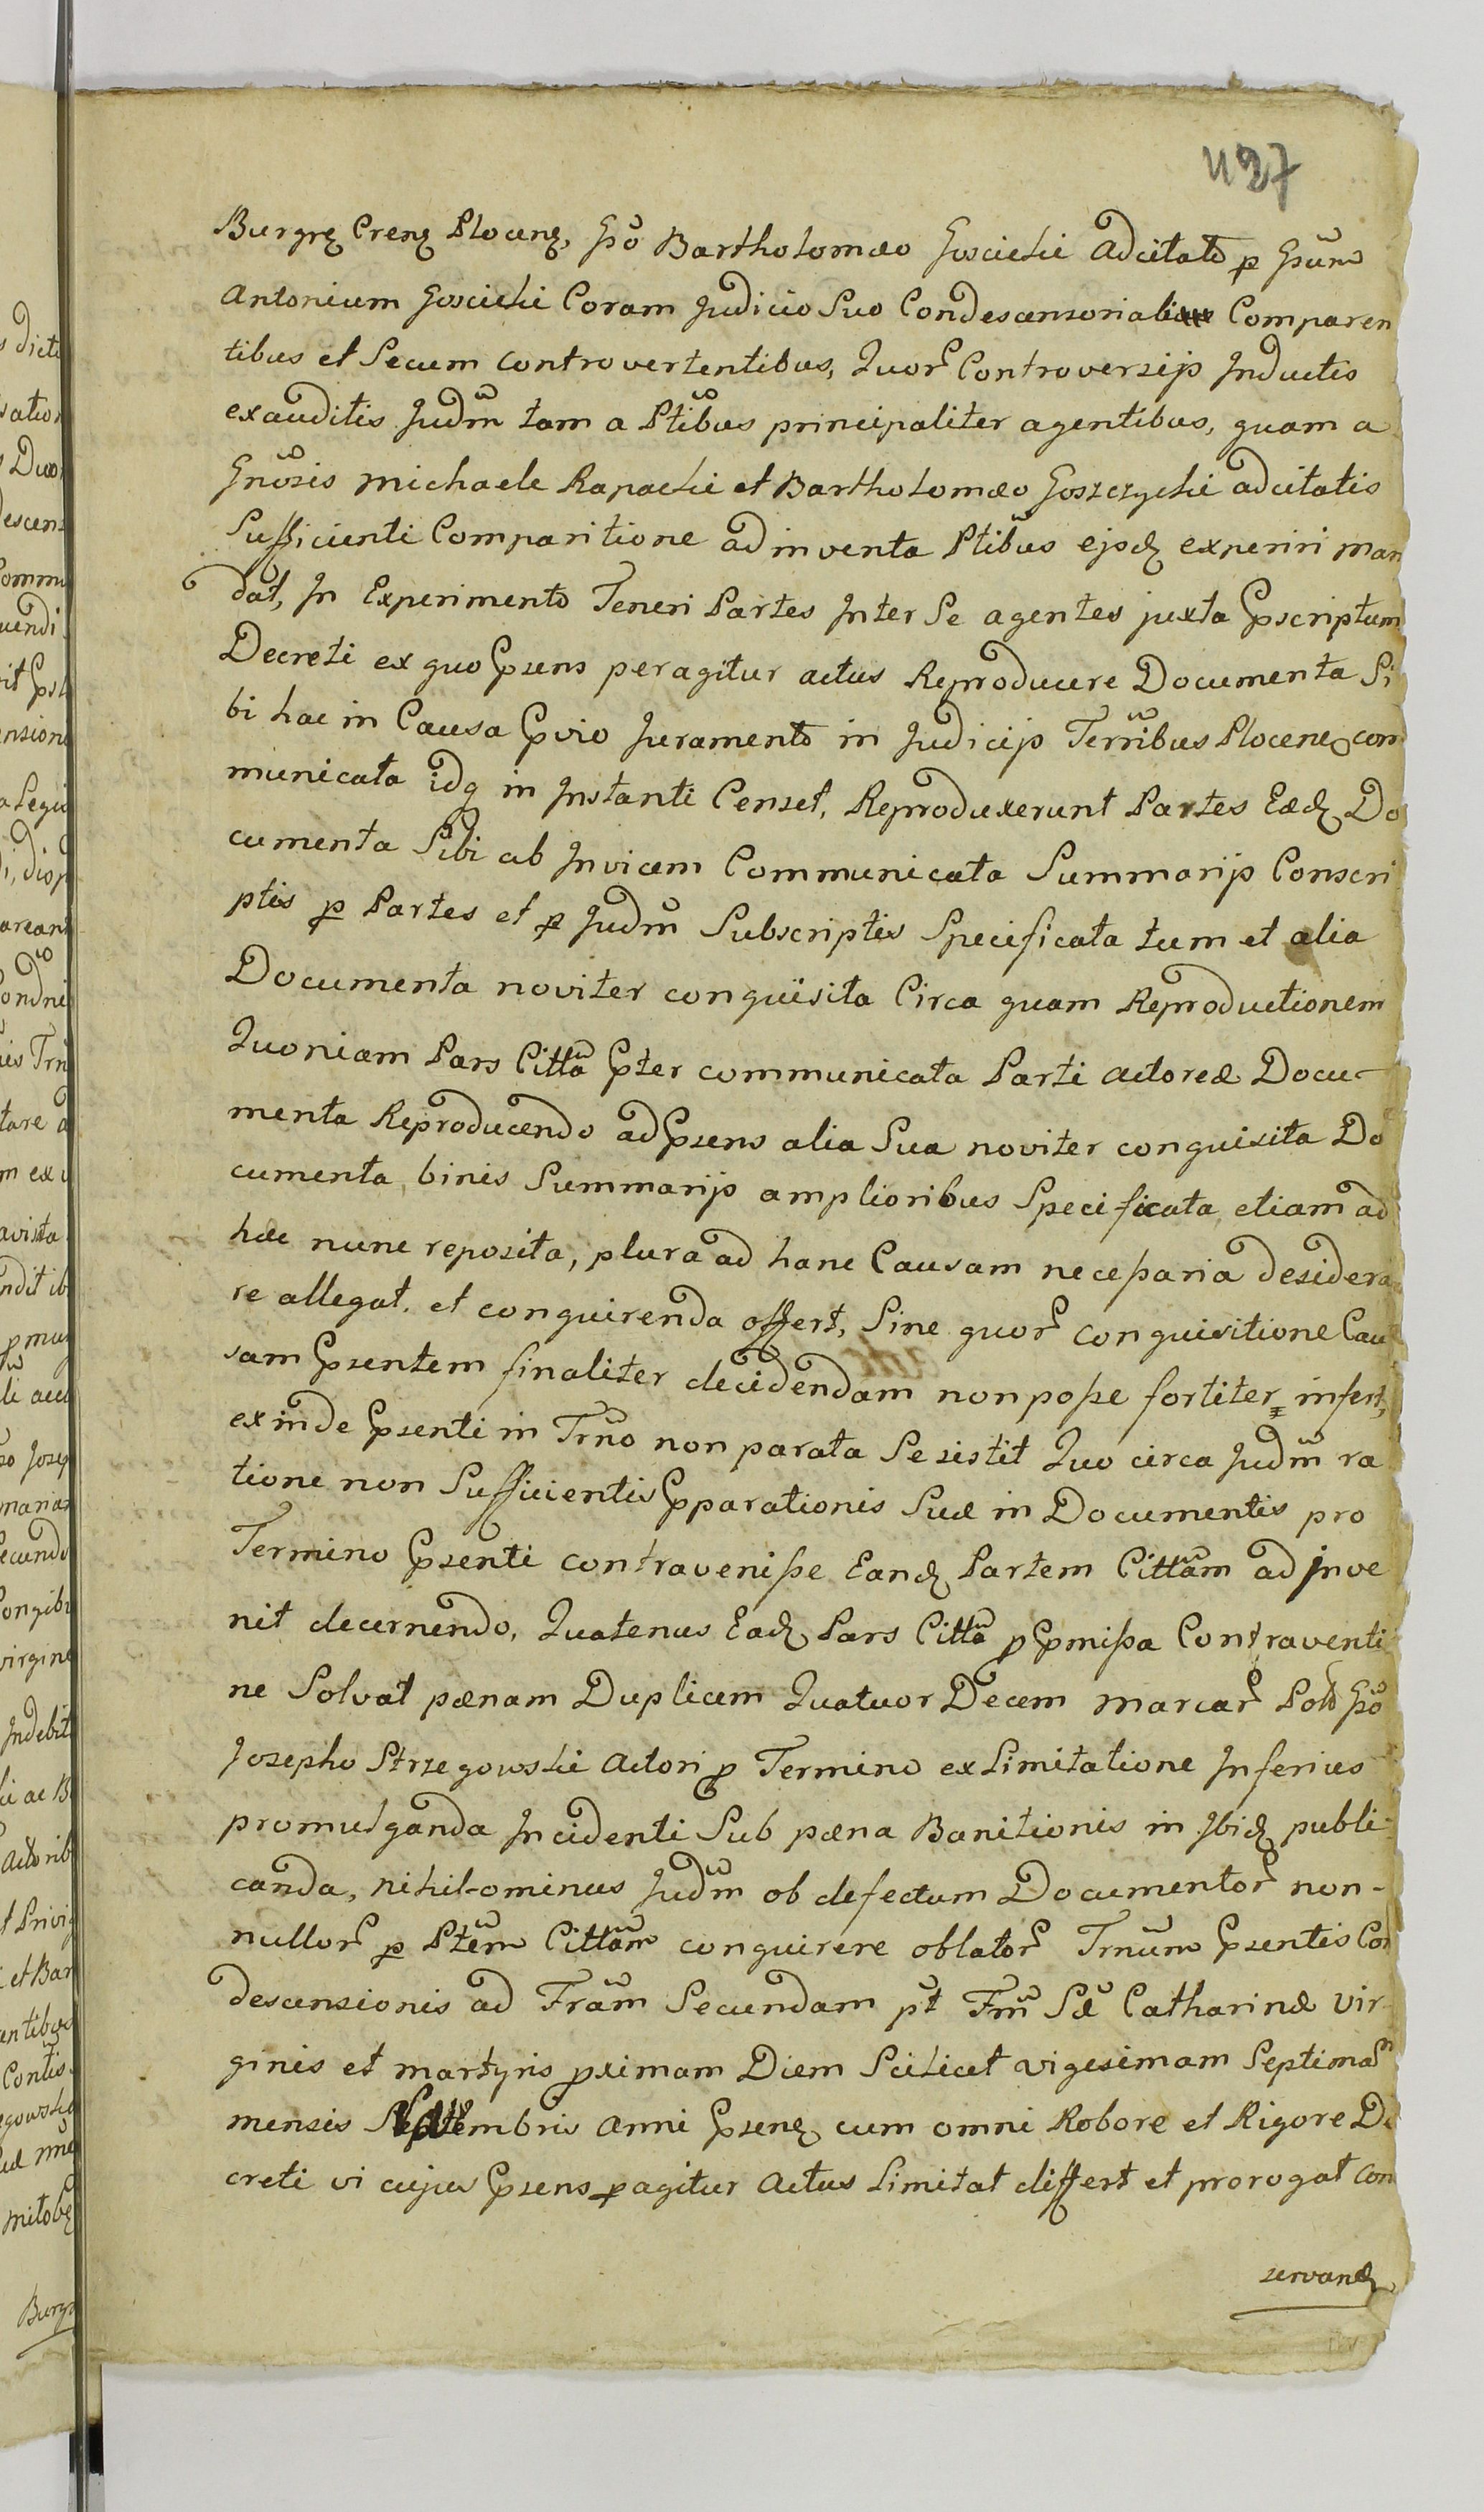 427
Burgrę Crenę Plocenę, Gso Bartholomæo Goscicki adcitato p Gsum
Antonium Goscicki Coram Judicio Suo Condescensoriali Comparen
tibus et Secum controvertentibus, Quor Controversijs Inductis
exauditis Judm tam a Ptibus principaliter agentibus, quam a
Gnosis Michaele Rapacki et Bartholomæo Goszczycki adcitatis
Sufficienti Comparitione adinventa Ptibus ejsdę experiri man
dat, In Experimento Teneri Partes Inter Se agentes juxta Pscriptum
Decreti ex quo Psens peragitur actus Reproducere Documenta Si
bi hac in Causa Pvio Juramento in Judicijs Terribus Plocenę com
municata idq in Instanti Censet, Reproduxerunt Partes Eædę Do
cumenta Sibi ab Invicem Communicata Summarijs Conscri
ptis p Partes et p Judm Subscriptis Specificata tum et alia
Documenta noviter conquisita Circa quam Reproductionem
Quoniam Pars Citta Pter communicata Parti actoreæ Docu-
menta Reproducendo ad Psens alia Sua noviter conquisita Do
cumenta, binis Summarijs amplioribus Specificata, etiam ad
hæc nunc reposita, plura ad hanc Causam necessaria desidera
re allegat, et conquirenda offert, Sine quor conquisitione Cau
sam Psentem finaliter decidendam non posse fortiter infert,
exinde Psenti in Trno non parata Se sistit Quo circa Judm ra
tione non Sufficientis Pparationis Suæ in Documentis pro
Termino Psenti contravenisse Eandę Partem Cittam ad inve
nit decernendo, Quatenus Eadę Pars Citta p Pmissa Contraventi
ne Solvat pænam Duplicem Quatuor Decem marcar Pol Gso
Josepho Strzegowski Actori p Termino ex Limitatione Inferius
promulganda Incidenti Sub pæna Banitionis in Ibidę publi-
canda, nihil-ominus Judm ob defectum Documentor non-
nullor p Ptem Cittam conquirere oblator Trnum Psentis Con
descensionis ad Fram Secundam pt Fm Sæ Catharinæ Vir-
ginis et Martyris pximam Diem Scilicet vigesimam Septimam
mensis embris Anni Psenę cum omni Robore et Rigore De
creti vi cujus Psens pagitur Actus Limitat differt et prorogat Con
servandę